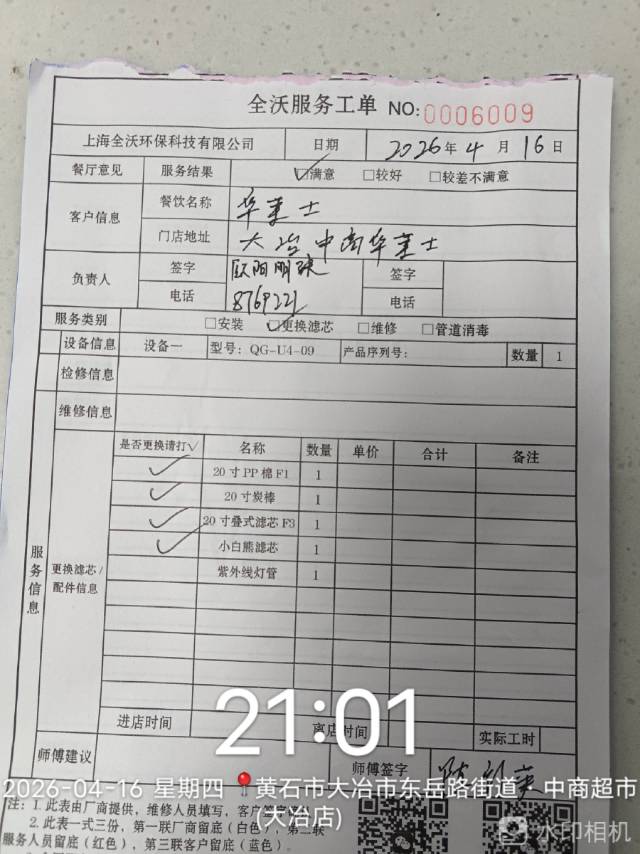 全沃服务工单 NO:0006009
上海全沃环保科技有限公司 日期 2026年4月16日
餐厅意见 服务结果 ☑满意 □较好 □较差不满意
客户信息 餐饮名称 华莱士
门店地址 大冶中商华莱士
负责人 签字 欧阳明珠 签字
电话 8769221 电话
服务类别 □安装 ☑更换滤芯 □维修 □管道消毒
设备信息 设备一 型号: QG-U4-09 产品序列号: 数量 1
检修信息
维修信息
是否更换请打√ 名称 数量 单价 合计 备注
✓ 20寸PP棉F1 1
✓ 20寸炭棒 1
✓ 20寸叠式滤芯F3 1
✓ 小白熊滤芯 1
紫外线灯管 1
服务信息
更换滤芯/配件信息
进店时间 离店时间 实际工时
21:01
师傅建议 师傅签字
2026-04-16 星期四 黄石市大冶市东岳路街道，中商超市
(大冶店)
注: 1. 此表由厂商提供，维修人员填写，客户
2. 此表一式三份，第一联厂商留底(白色)，第二联
服务人员留底(红色)，第三联客户留底(蓝色)。
水印相机